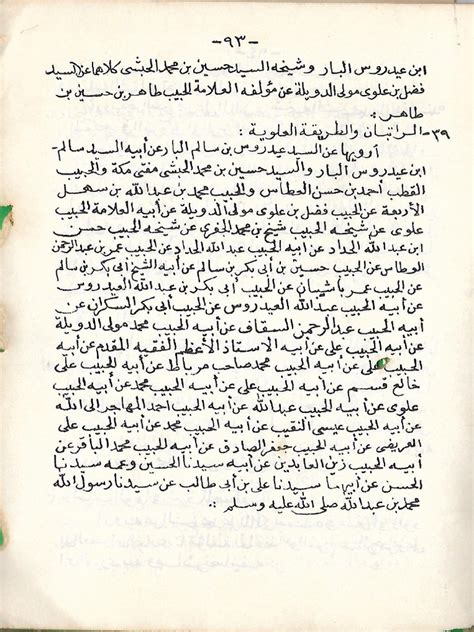 -٩٣-
ابن عيدروس البار وشيخه السيد حسين بن محمد الحبشي كلاهما عن السيد
فضل بن علوي مولى الدويلة عن مؤلفه العلامة الحبيب طاهر بن حسين بن
طاهر :
٣٩- الراتبان والطريقة العلوية :
أرويها عن السيد عيدروس بن سالم البار عن أبيه السيد سالم-
ابن عيدروس البار والسيد حسين بن محمد الحبشي مفتي مكة والحبيب
القطب أحمد بن حسن العطاس والحبيب محمد بن عبد الله بن سهل
الأربعة عن الحبيب فضل بن علوي مولى الدويلة عن أبيه العلامة الحبيب
علوي عن شيخه الحبيب شيخ بن محمد الجفري عن شيخه الحبيب حسن
ابن عبد الله الحداد عن أبيه الحبيب عبد الله الحداد عن الحبيب عمر بن عبد الرحمن
العطاس عن الحبيب حسين بن أبي بكر بن سالم عن أبيه الشيخ أبي بكر بن سالم
عن الحبيب عمر باشيبان عن الحبيب أبي بكر بن عبد الله العيدروس
عن أبيه الحبيب عبد الله العيدروس عن أبيه الحبيب أبي بكر السكران عن
أبيه الحبيب عبد الرحمن السقاف عن أبيه الحبيب محمد مولى الدويلة
عن أبيه الحبيب علي عن أبيه الاستاذ الأعظم الفقيه المقدم عن أبيه
الحبيب علي عن أبيه الحبيب محمد صاحب مرباط عن أبيه الحبيب علي
خالع قسم عن أبيه الحبيب علي عن أبيه الحبيب محمد عن أبيه الحبيب
علوي عن أبيه الحبيب عبد الله عن أبيه الحبيب احمد المهاجر إلى الله
عن أبيه الحبيب عيسى النقيب عن أبيه الحبيب محمد عن أبيه الحبيب علي
العريضي عن أبيه الحبيب جعفر الصادق عن أبيه الحبيب محمد الباقر عن
أبيه الحبيب زين العابدين عن أبيه سيدنا الحسين وعمه سيدنا
الحسن عن أبيهما سيدنا علي بن أبي طالب عن سيدنا رسول الله
محمد بن عبد الله صلى الله عليه وسلم :